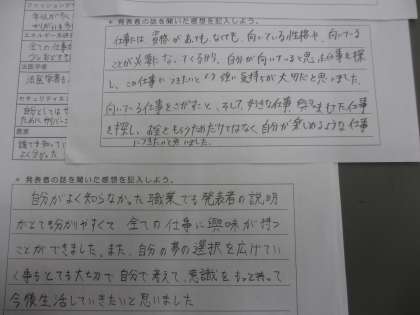 ＊発表者の話を聞いた感想を記入しよう。
仕事には資格があっても、なくても、向いている性格や、向いている
ことが必要になってくるから、自分が向いていると思う仕事を探
し、この仕事につきたいという強い気持ちが大切だと思いました。
向いている仕事をさがすこと、そして好きな仕事、興味をもった仕事
を探し、
だけではなく、自分が楽しめるような仕事
につきたいと思いました。
法医学者
＊発表者の話を聞いた感想を記入しよう。
自分がよく知らなかった職業でも発表者の説明
がとても分かりやすくて、全ての仕事に興味が持つ
ことができました。また、自分の夢の選択を広げてい
く事もとても大切で自分で考えて、意識をもっと持って
今後生活していきたいと思いました